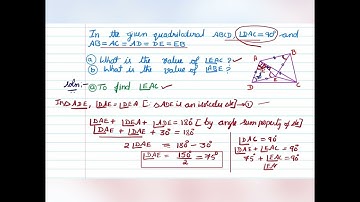 In the given quadrilateral ABCD, ∠DAC = 90° and
AB = AC = AD = DE = EB
ⓐ What is the value of ∠EAC ?
ⓑ What is the value of ∠ABE ?
Soln:- ⓐ To find ∠EAC
In △ADE, ∠DAE = ∠DEA [∵ △ADE is an isosceles △le] → ①
∠DAE + ∠DEA + ∠ADE = 180° [by angle sum property of △le]
∠DAE + ∠DAE + 30° = 180°
2∠DAE = 180° - 30°
∠DAE = 150°/2 = 75°
∠DAC = 90°
∠DAE + ∠EAC = 90°
75° + ∠EAC = 90°
∠EAC
A
B
D
E
C